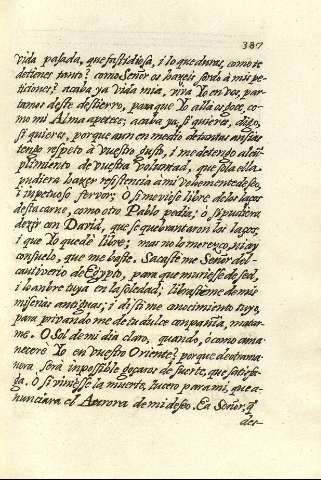 387
vida pasada, que fastidiosa, i lo que duras, como te
detienes tanto? como Señor os haveis sordo à mis pe-
ticiones? acaba ya vida mia, viva Yo en vos, par-
tamos deste destierro, para que Yo allà os goze, co-
mo mi Alma apetece; acaba ya, si quieres, digo,
si quieres, porque aun en medio de tantas ansias
tengo respeto à vuestro gusto, i me detengo al cũ-
plimiento de vuestra voluntad, que sola ella
pudiera hazer resistencia à mi vehemente deseo,
i impetuoso fervor. O si me viese libre de los lazos
desta carne, como otro Pablo pedia; ò si pudiera
dezir con David, que se quebrantaron los lazos,
i que Yo quedè libre; mas no lo merezco, ni ay
consuelo, que me baste. Sacaste me Señor del
cautiverio de Egypto, para que muriese de sed,
i hanbre tuya en la soledad; librasteme de mis
miserias antiguas; i disteme conocimiento tuyo,
para privandome de tu dulce compañia, matar-
me. O Sol de mi dia claro, quando, ò como ama-
necerè Yo en vuestro Oriente? porque de otra ma-
nera serà inposible gozaros de suerte, que satisfa-
ga. O si viniese la muerte, luzero para mi, que a-
nunciara el Aurora de mi deseo. Ea Señor, q̃
des-